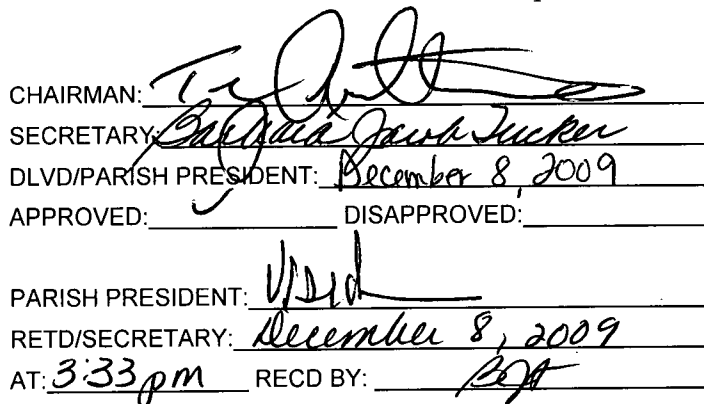 CHAIRMAN:
SECRETARY: Barbara Jacob Tucker
DLVD/PARISH PRESIDENT: December 8, 2009
APPROVED: DISAPPROVED:
PARISH PRESIDENT:
RETD/SECRETARY: December 8, 2009
AT: 3:33 pm RECD BY: